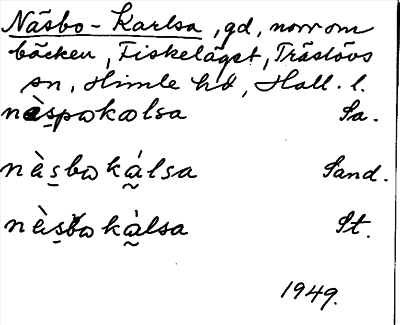 Näsbo-Karlsa, gd, norr om
bäcken, Fiskeläget, Träslövs
sn, Himle hd, Hall. l.
nàspokolsa Sa.
nàs̱bokálsa Sand.
nàs̱bokálsa St.
1949.